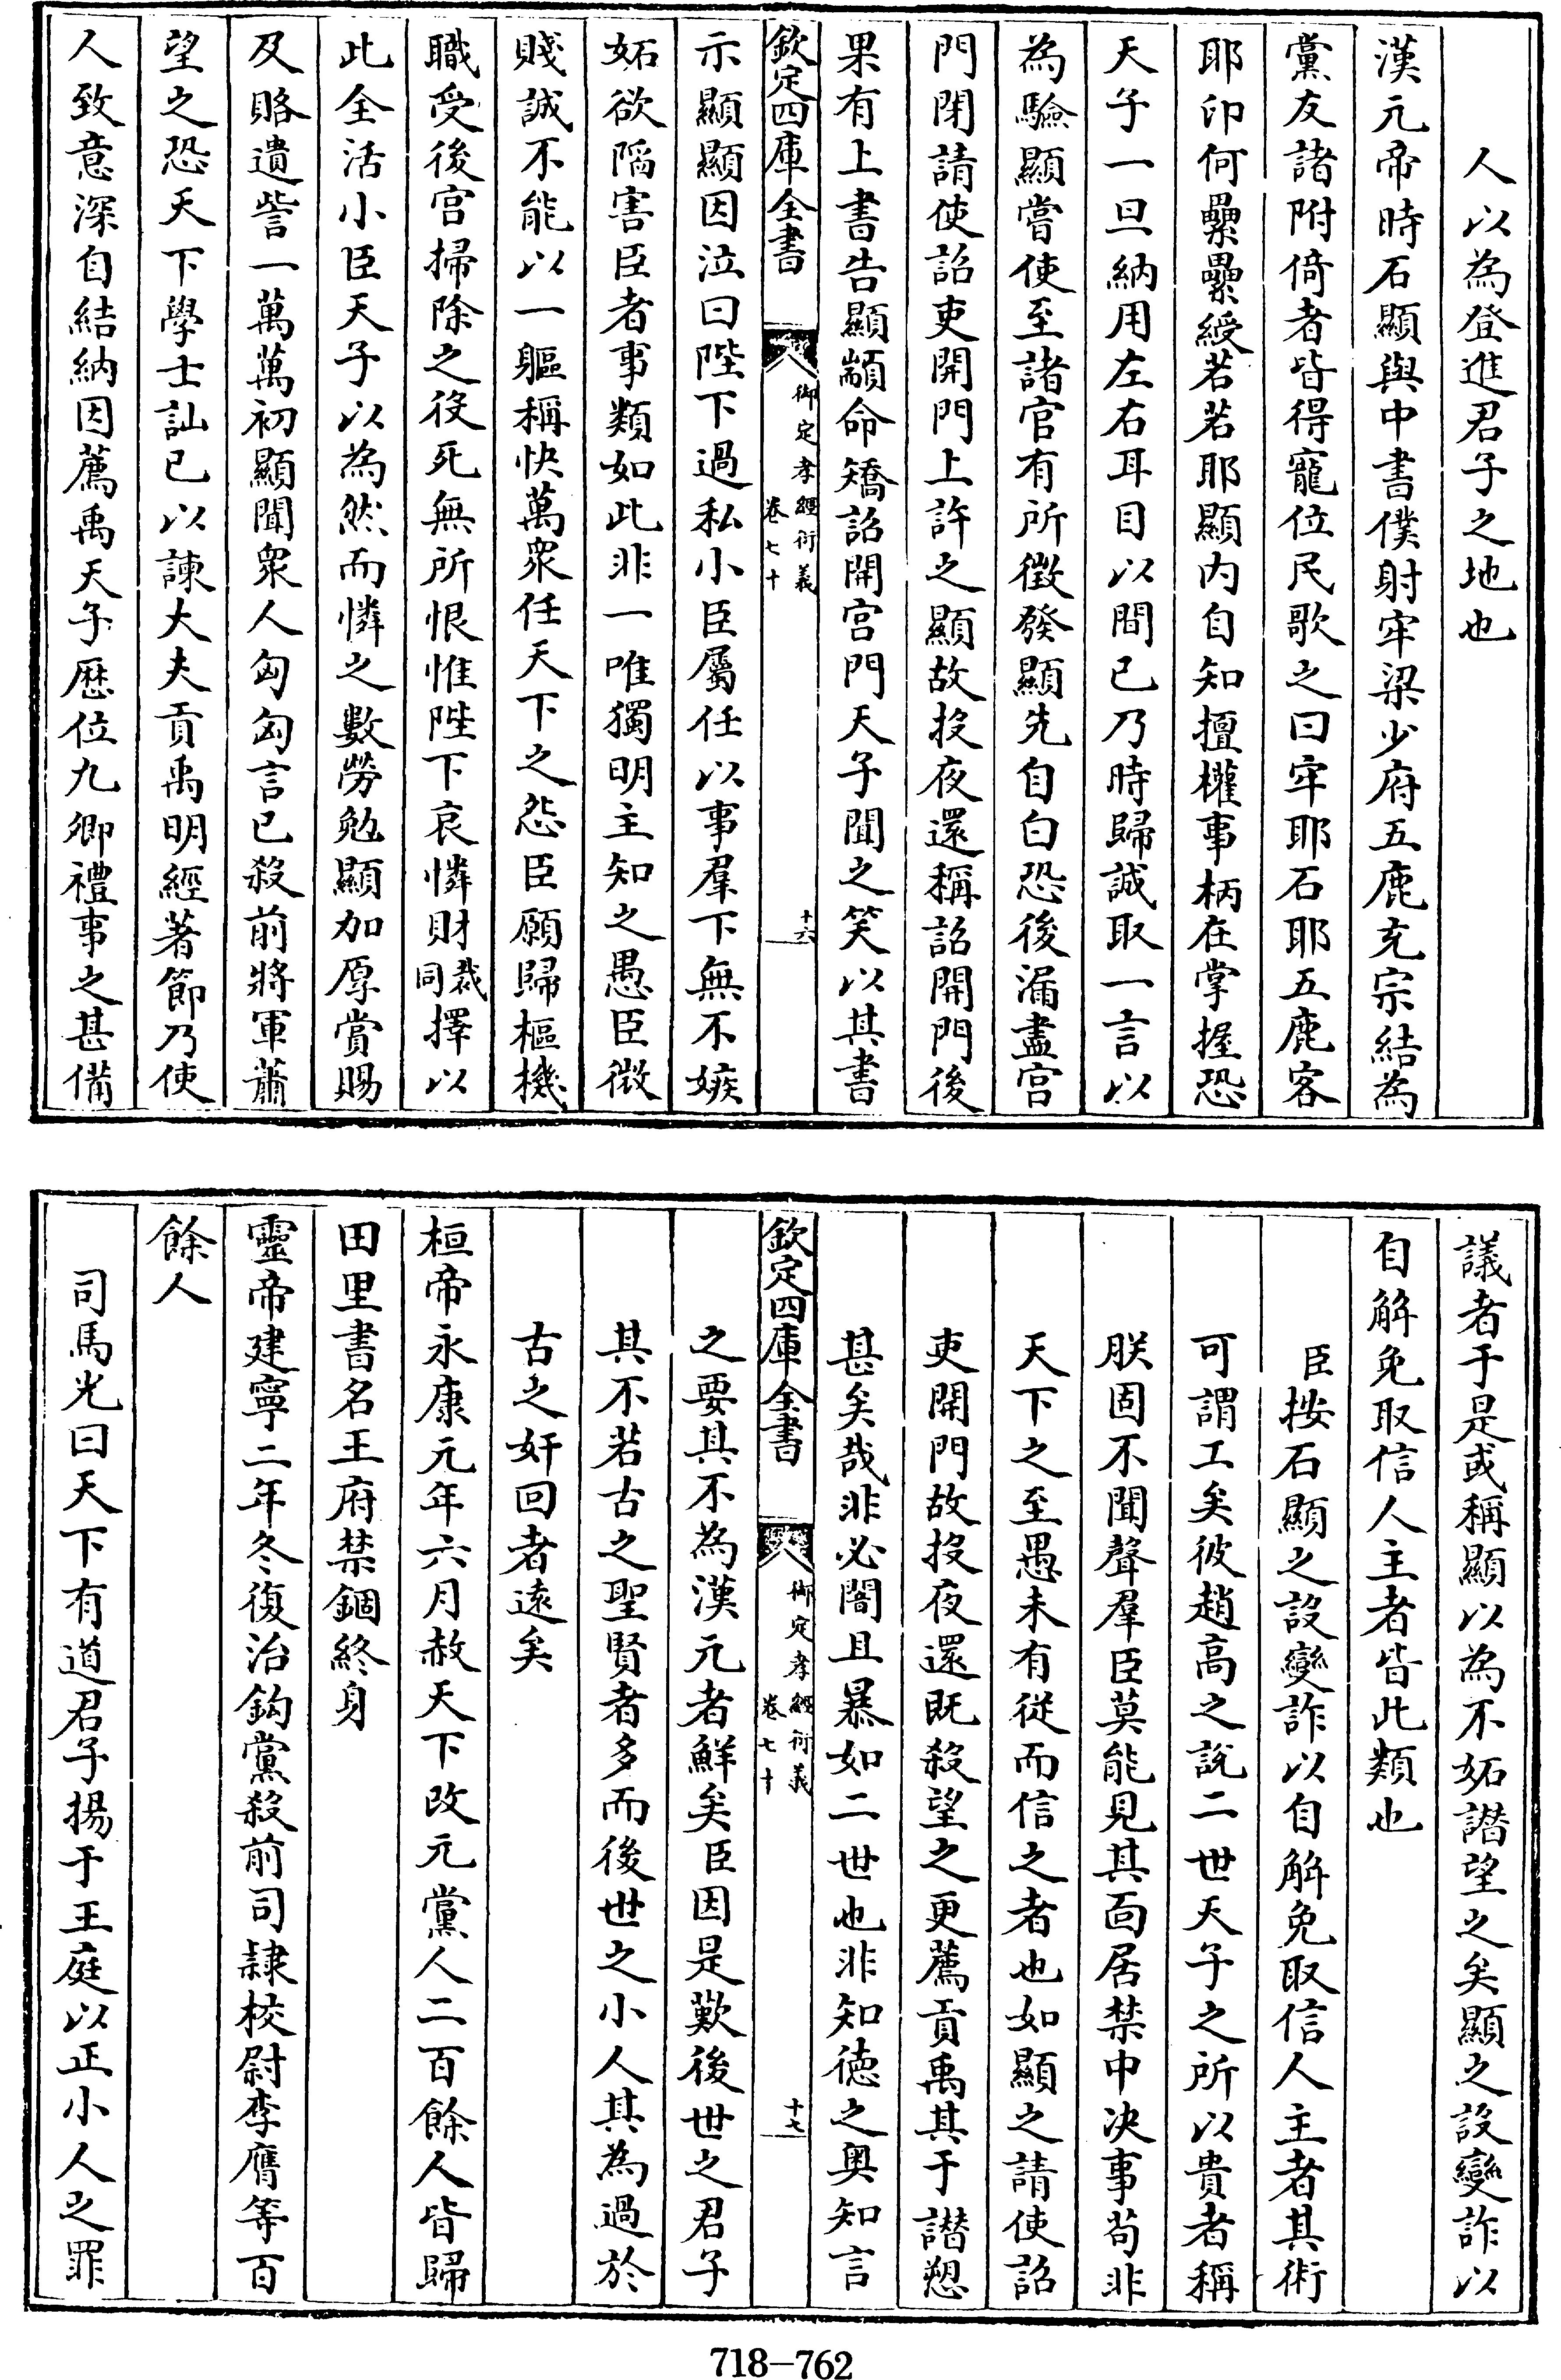 人以為登進君子之地也
漢元帝時石顯與中書僕射牢梁少府五鹿充宗結為
黨友諸附倚者皆得寵位民歌之曰牢耶石耶五鹿客
耶印何纍纍綬若若耶顯内自知擅權事柄在掌握恐
天子一旦納用左右耳目以間已乃時歸誠取一言以
為驗顯嘗使至諸官有所徴發顯先自白恐後漏盡宫
門閉請使詔吏開門上許之顯故投夜還稱詔開門後
果有上書告顯顓命矯詔開宫門天子聞之笑以其書
欽定四庫全書
御定孝經衍義
卷七十
十六
示顯顯因泣曰陛下過私小臣屬任以事羣下無不嫉
妬欲䧟害臣者事類如此非一唯獨明主知之愚臣微
賤誠不能以一軀稱快萬衆任天下之怨臣願歸樞機
職受後宫掃除之役死無所恨惟陛下哀憐財裁同擇以
此全活小臣天子以為然而憐之數勞勉顯加厚賞賜
及賂遺訾一萬萬初顯聞衆人匈匈言已殺前將軍蕭
望之恐天下學士訕已以諫大夫貢禹明經著節乃使
人致意深自結納因薦禹天子歴位九卿禮事之甚備
議者于是或稱顯以為不妬譖望之矣顯之設變詐以
自解免取信人主者皆此類也
臣按石顯之設變詐以自解免取信人主者其術
可謂工矣彼趙高之說二世天子之所以貴者稱
朕固不聞聲羣臣莫能見其面居禁中决事苟非
天下之至愚未有從而信之者也如顯之請使詔
吏開門故投夜還既殺望之更薦貢禹其于譖愬
甚矣哉非必闇且暴如二世也非知徳之奥知言
欽定四庫全書
御定孝經衍義
卷七十
十七
之要其不為漢元者鮮矣臣因是歎後世之君子
其不若古之聖賢者多而後世之小人其為過於
古之奸回者逺矣
桓帝永康元年六月赦天下改元黨人二百餘人皆歸
田里書名王府禁錮終身
靈帝建寧二年冬復治鈎黨殺前司隷校尉李膺等百
餘人
司馬光曰天下有道君子揚于王庭以正小人之罪
718-762